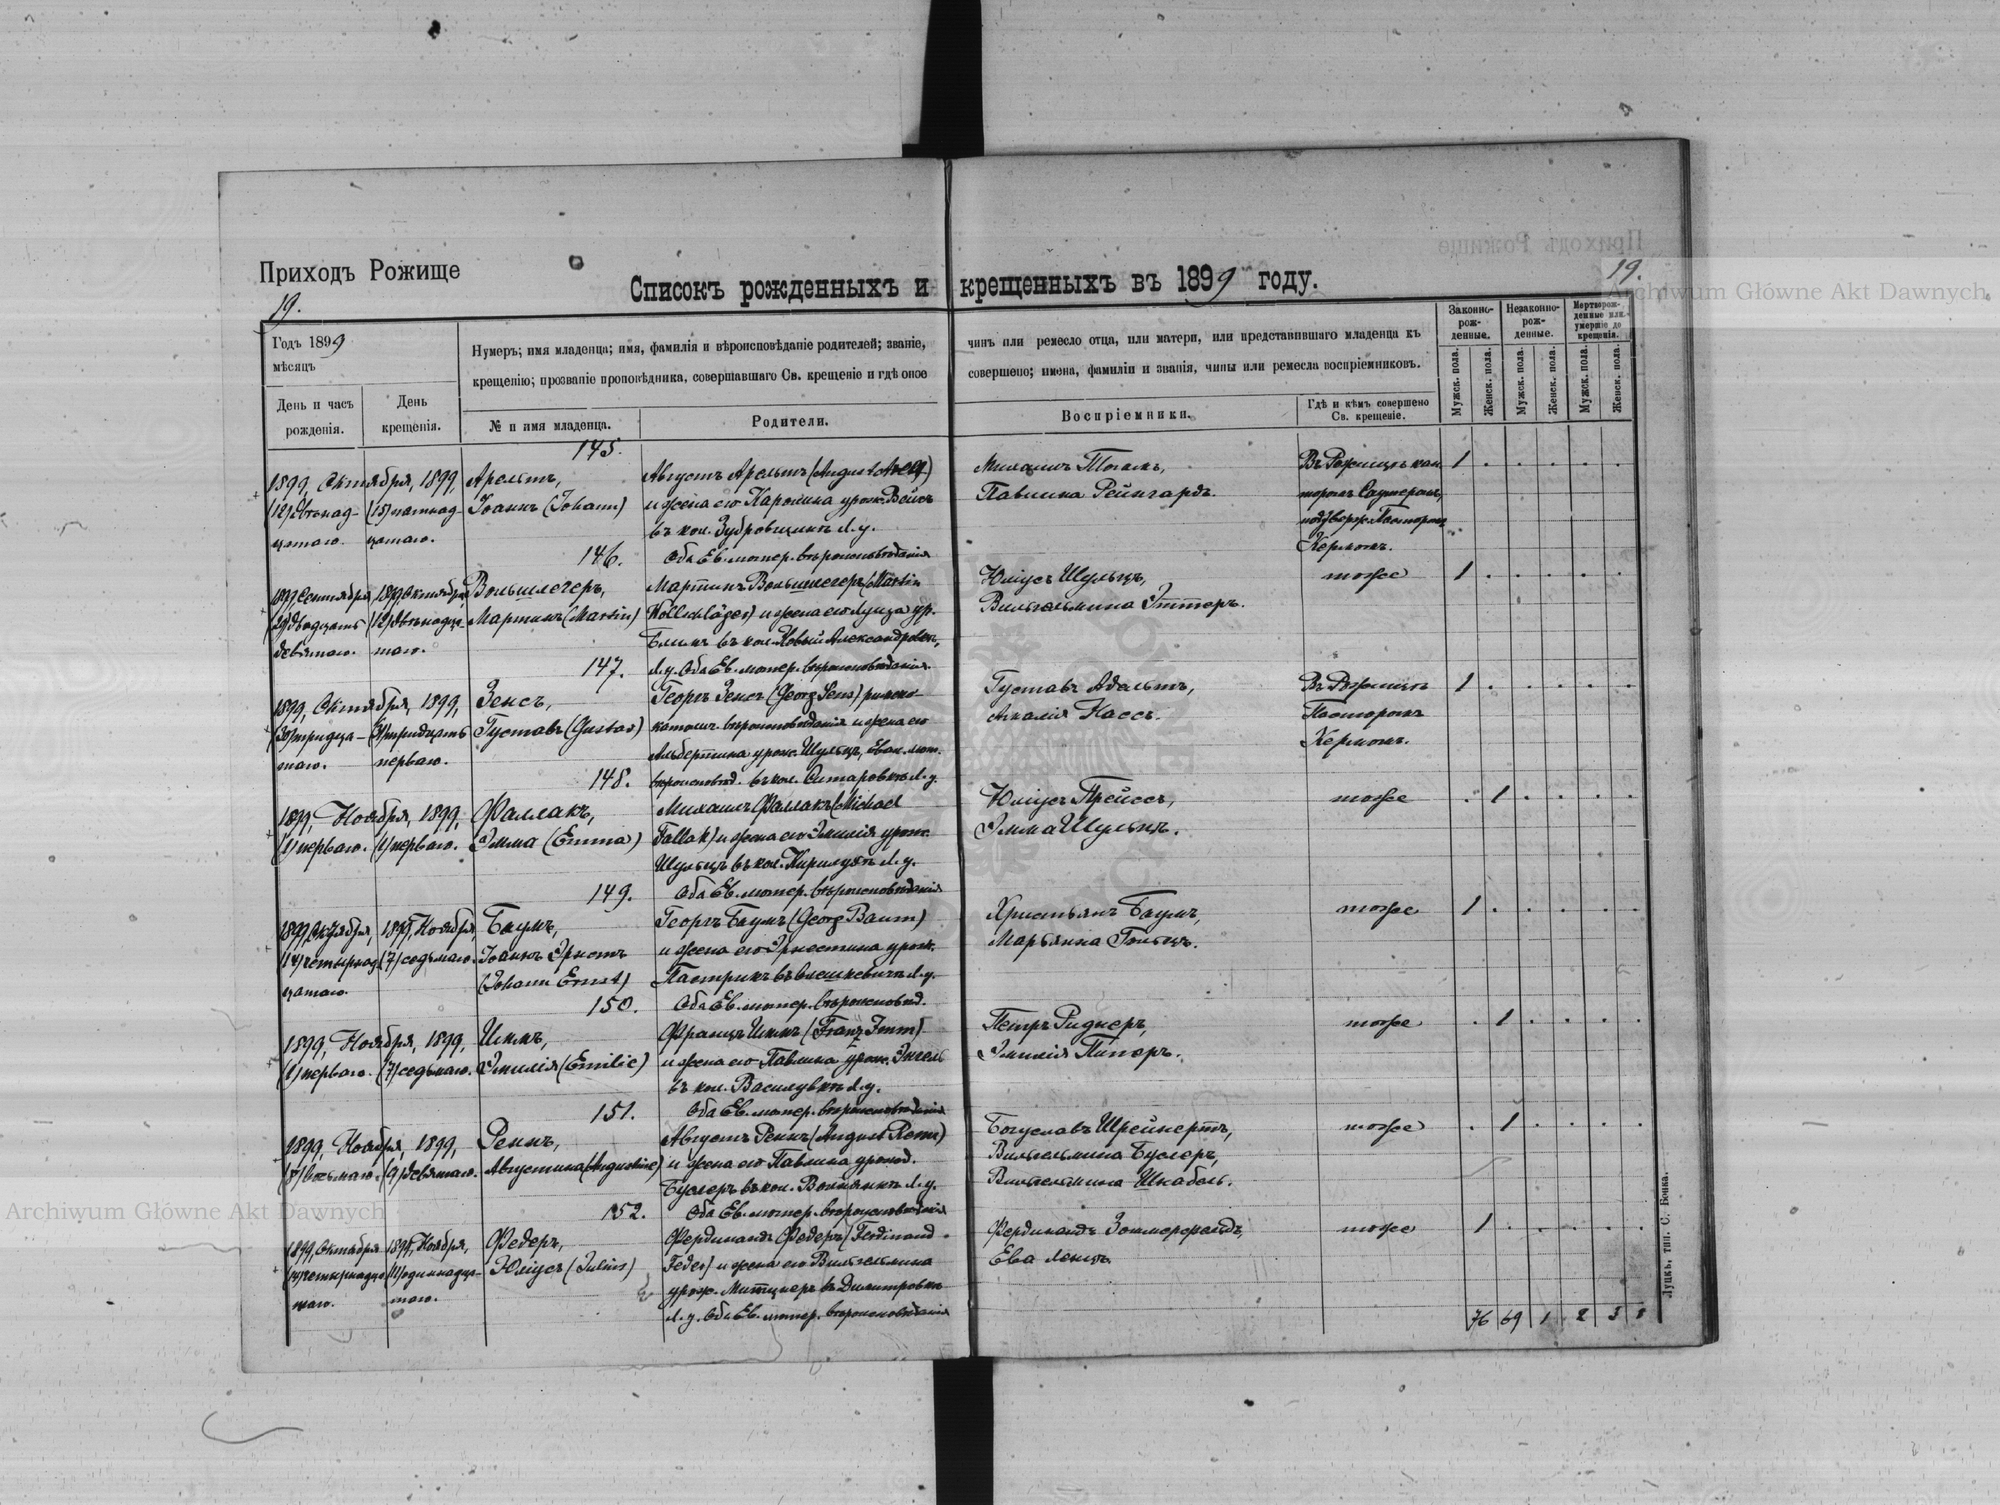 Приходъ Рожище
Приходъ Рожище
19.
Archiwum Główne Akt Dawnych
Списокъ рожденныхъ и крещенныхъ въ 1899 году.
19.
Годъ 1899
мѣсяцъ
День и часъ рожденія.
День крещенія.
Нумеръ; имя младенца; имя, фамилія и вѣроисповѣданіе родителей; званіе, чинъ или ремесло отца, или матери, или представившаго младенца къ
крещенію; прозваніе проповѣдника, совершавшаго Св. крещеніе и гдѣ оное совершено; имена, фамиліи и званія, чины или ремесла воспріемниковъ.
№ и имя младенца.
Родители.
Воспріемники.
Гдѣ и кѣмъ совершено Св. крещеніе.
Законно-рож-денные.
Незаконно-рож-денные.
Мертворож-денные или умершіе до крещенія.
Мужск. пола.
Женск. пола.
Мужск. пола.
Женск. пола.
Мужск. пола.
Женск. пола.
145.
1899, Октября, 1899, Арельтъ, Августъ Арельтъ (August) Павлина Рейнгардъ.
(12) двѣнад- (15) пятнад- Іоаннъ (Johann) и жена его Каролина урож.
цатаго. цатаго. въ кол. Л. у.
Оба Ев. лютер. вѣроисповѣданія
Пасторомъ
146.
1899, Сентября, 1899, Октября, Вольшлегеръ, Мартинъ Вольшлегеръ (Martin Юліусъ Шульцъ, тоже 1
(29) двадцать (12) двѣнадца- Мартинъ (Martin) Wollschläger) и жена его Луиза ур. Вильгельмина Эттеръ.
девятаго. таго. въ кол. Новый Александровкѣ,
Л. у. Оба Ев. лютер. вѣроисповѣданія.
147.
1899, Октября, 1899, Зенсъ, Георгъ Зенсъ (Georg Sens) римско- Густавъ Адельтъ, Въ Рожищѣ 1
(30) тридца- (31) тридцать Густавъ (Gustav) католич. вѣроисповѣданія и жена его Амалія Кассъ. Пасторомъ
таго. перваго. Альбертина урож. Шульцъ, Еван. лют. Кермомъ.
вѣроисповѣд. въ кол. Л. у.
148.
1899, Ноября, 1899, Фаллакъ, Михаилъ Фаллакъ (Michael Юліусъ Прейсъ, тоже 1
(1) перваго. (1) перваго. Эмма (Emma) Fallak) и жена его Эмилія урож. Эмма Шульцъ.
Шульцъ въ кол. Л. у.
Оба Ев. лютер. вѣроисповѣданія
149.
1899, Октября, 1899, Ноября, Баумъ, Георгъ Баумъ (Georg Baum) Христьянъ Баумъ, тоже 1
(14) четырнад- (7) седьмаго. Іоаннъ Эрнстъ и жена его Эрнестина урож. Марьянна Гольцъ.
цатаго. (Johann Ernst) Патрикъ въ Олешкевичѣ Л. у.
Оба Ев. лютер. вѣроисповѣд.
150.
1899, Ноября, 1899, Иммъ, Францъ Иммъ (Franz Imm) Петръ Ридигеръ, тоже 1
(1) перваго. (7) седьмаго. Эмилія (Emilie) и жена его Павлина урож. Энгель Эмилія Пиперъ.
въ кол. Василувкѣ Л. у.
Оба Ев. лютер. вѣроисповѣданія
151.
1899, Ноября, 1899, Реннъ, Августъ Реннъ (August Renn) Богуславъ Шрейнертъ, тоже 1
(8) восьмаго. (9) девятаго. Августина (Augustine) и жена его Павлина урожд. Вильгельмина Буслеръ,
Буслеръ въ кол. Волнянкѣ Л. у. Вильгельмина Шнабель.
Оба Ев. лютер. вѣроисповѣданія
152.
1899, Октября 1899, Ноября, Федеръ, Фердинандъ Федеръ (Ferdinand Фердинандъ Зоммерфельдъ, тоже 1
(14) четырнадца- (11) одиннадца- Юліусъ (Julius) Feder) и жена его Вильгельмина Ева Ленцъ.
таго. таго. урож. въ Димитровкѣ
Л. у. Оба Ев. лютер. вѣроисповѣданія
76 69 1 2 3 1
Луцкъ, тип. С. Бонка.
Archiwum Główne Akt Dawnych